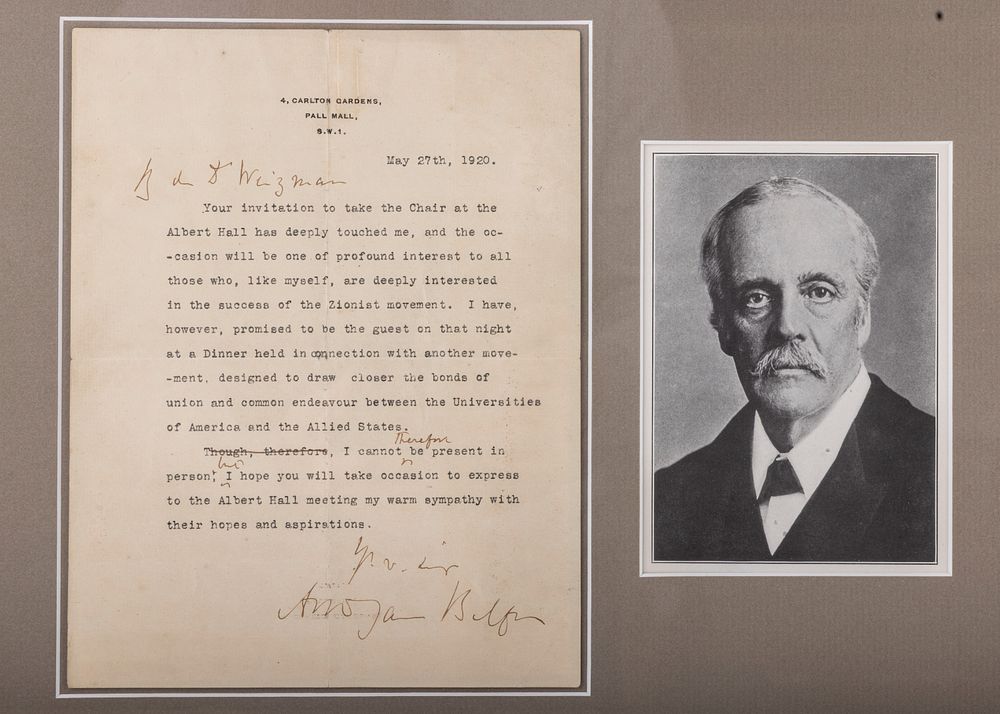 4, CARLTON GARDENS,
PALL MALL,
S.W.1.
May 27th, 1920.
My dear Dr Weizman
Your invitation to take the Chair at the
Albert Hall has deeply touched me, and the oc-
-casion will be one of profound interest to all
those who, like myself, are deeply interested
in the success of the Zionist movement. I have,
however, promised to be the guest on that night
at a Dinner held in connection with another move-
-ment, designed to draw closer the bonds of
union and common endeavour between the Universities
of America and the Allied States.
therefore
Though, therefore, I cannot be present in
but
person, I hope you will take occasion to express
to the Albert Hall meeting my warm sympathy with
their hopes and aspirations.
Arthur James Balfour